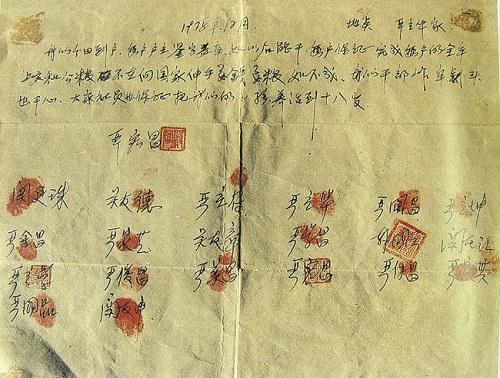 1978年12月 地点 严立华家
我们分田到户，每户户主签字盖章，如以后能干，每户保证完成每户的全年
上交和公粮，不在向国家伸手要钱要粮。如不成，我们干部作牢刹头
也干心，大家社员也保证把我们的小孩养活到十八岁。
严宏昌
关廷珠 关友德 严立符 严立华 严国昌 严立坤
严金昌 严家芝 关友章 严学昌 关友江
严立学 严俊昌 严美昌 严付昌 严家其
严国品 关友申